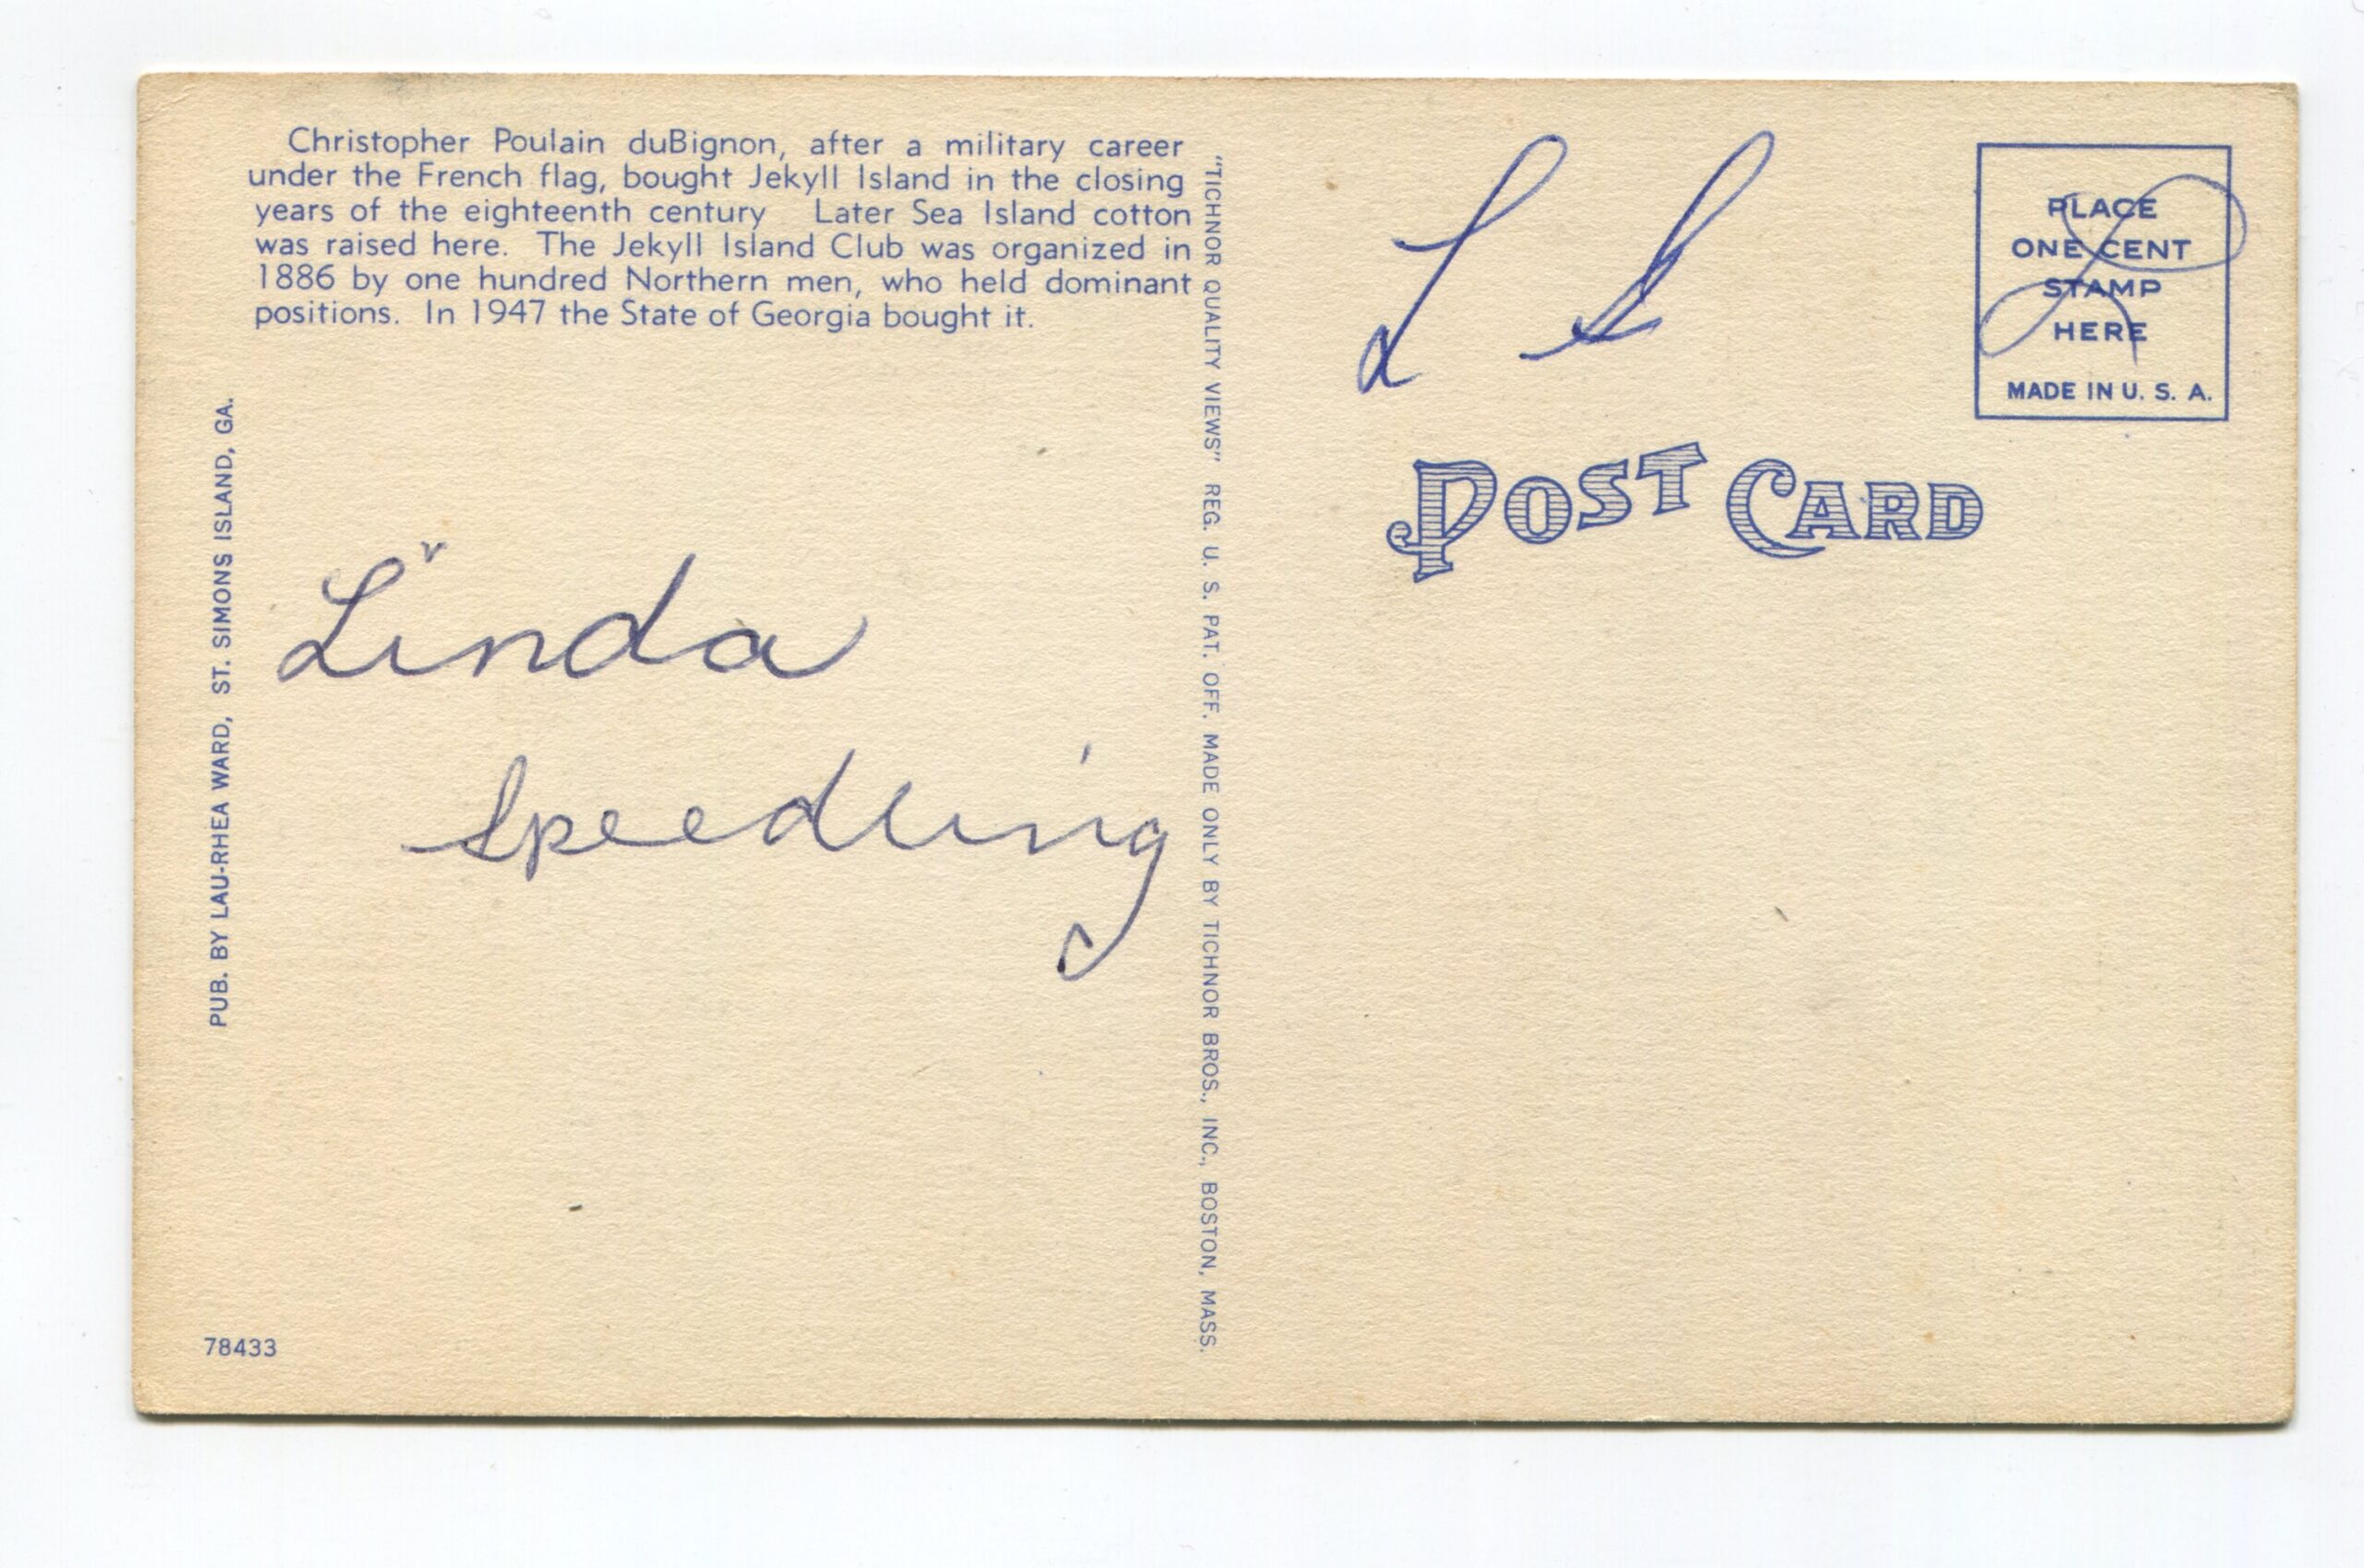 Christopher Poulain duBignon, after a military career
under the French flag, bought Jekyll Island in the closing
years of the eighteenth century Later Sea Island cotton
was raised here. The Jekyll Island Club was organized in
1886 by one hundred Northern men, who held dominant
positions. In 1947 the State of Georgia bought it.
PUB. BY LAU-RHEA WARD, ST. SIMONS ISLAND, GA.
Linda
Speedling
78433
"TICHNOR QUALITY VIEWS" REG. U. S. PAT. OFF. MADE ONLY BY TICHNOR BROS., INC., BOSTON, MASS.
L S
PLACE
ONE CENT
STAMP
HERE
MADE IN U. S. A.
POST CARD